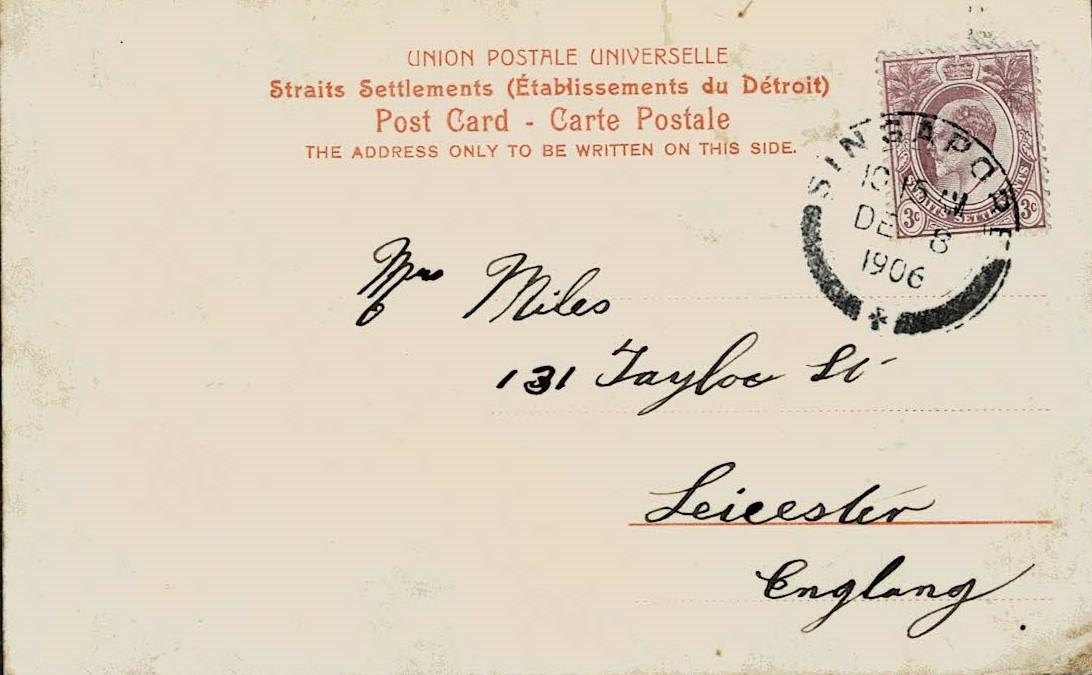 UNION POSTALE UNIVERSELLE
Straits Settlements (Établissements du Détroit)
Post Card - Carte Postale
THE ADDRESS ONLY TO BE WRITTEN ON THIS SIDE.
SINGAPORE
DE 8
1906
3c 3c
Mrs Miles
131 Taylor St
Leicester
England